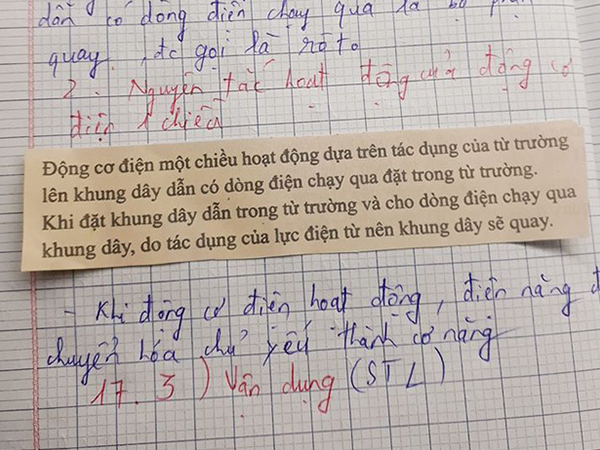 dẫn có dòng điện chạy qua là bộ phận
quay, đc gọi là rôto
2. Nguyên tắc hoạt động của động cơ
điện 1 chiều
Động cơ điện một chiều hoạt động dựa trên tác dụng của từ trường
lên khung dây dẫn có dòng điện chạy qua đặt trong từ trường.
Khi đặt khung dây dẫn trong từ trường và cho dòng điện chạy qua
khung dây, do tác dụng của lực điện từ nên khung dây sẽ quay.
- Khi động cơ điện hoạt động, điện năng đ
chuyển hóa chủ yếu thành cơ năng
17.3) Vận dụng (STL)